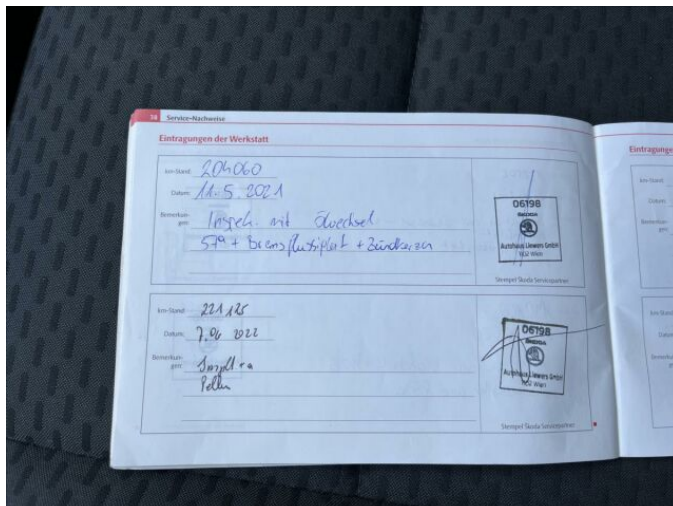 38 Service-Nachweise
Eintragungen der Werkstatt
km-Stand: 204060
Datum: 11.5.2021
Bemerkun-
gen: Inspek. mit Ölwechsel
+ Bremsflüssigkeit + Zündkerzen
06198
ŠKODA
Autohaus Liewers GmbH
Wien
Stempel Škoda Servicepartner
km-Stand: 221 125
Datum: 7.06 2022
Bemerkun-
gen:
06198
ŠKODA
Autohaus Liewers GmbH
Wien
Stempel Škoda Servicepartner
Eintragunge
km-Stand:
Datum:
Bemerkun-
gen:
km-Stand
Datum
Bemerku
gen